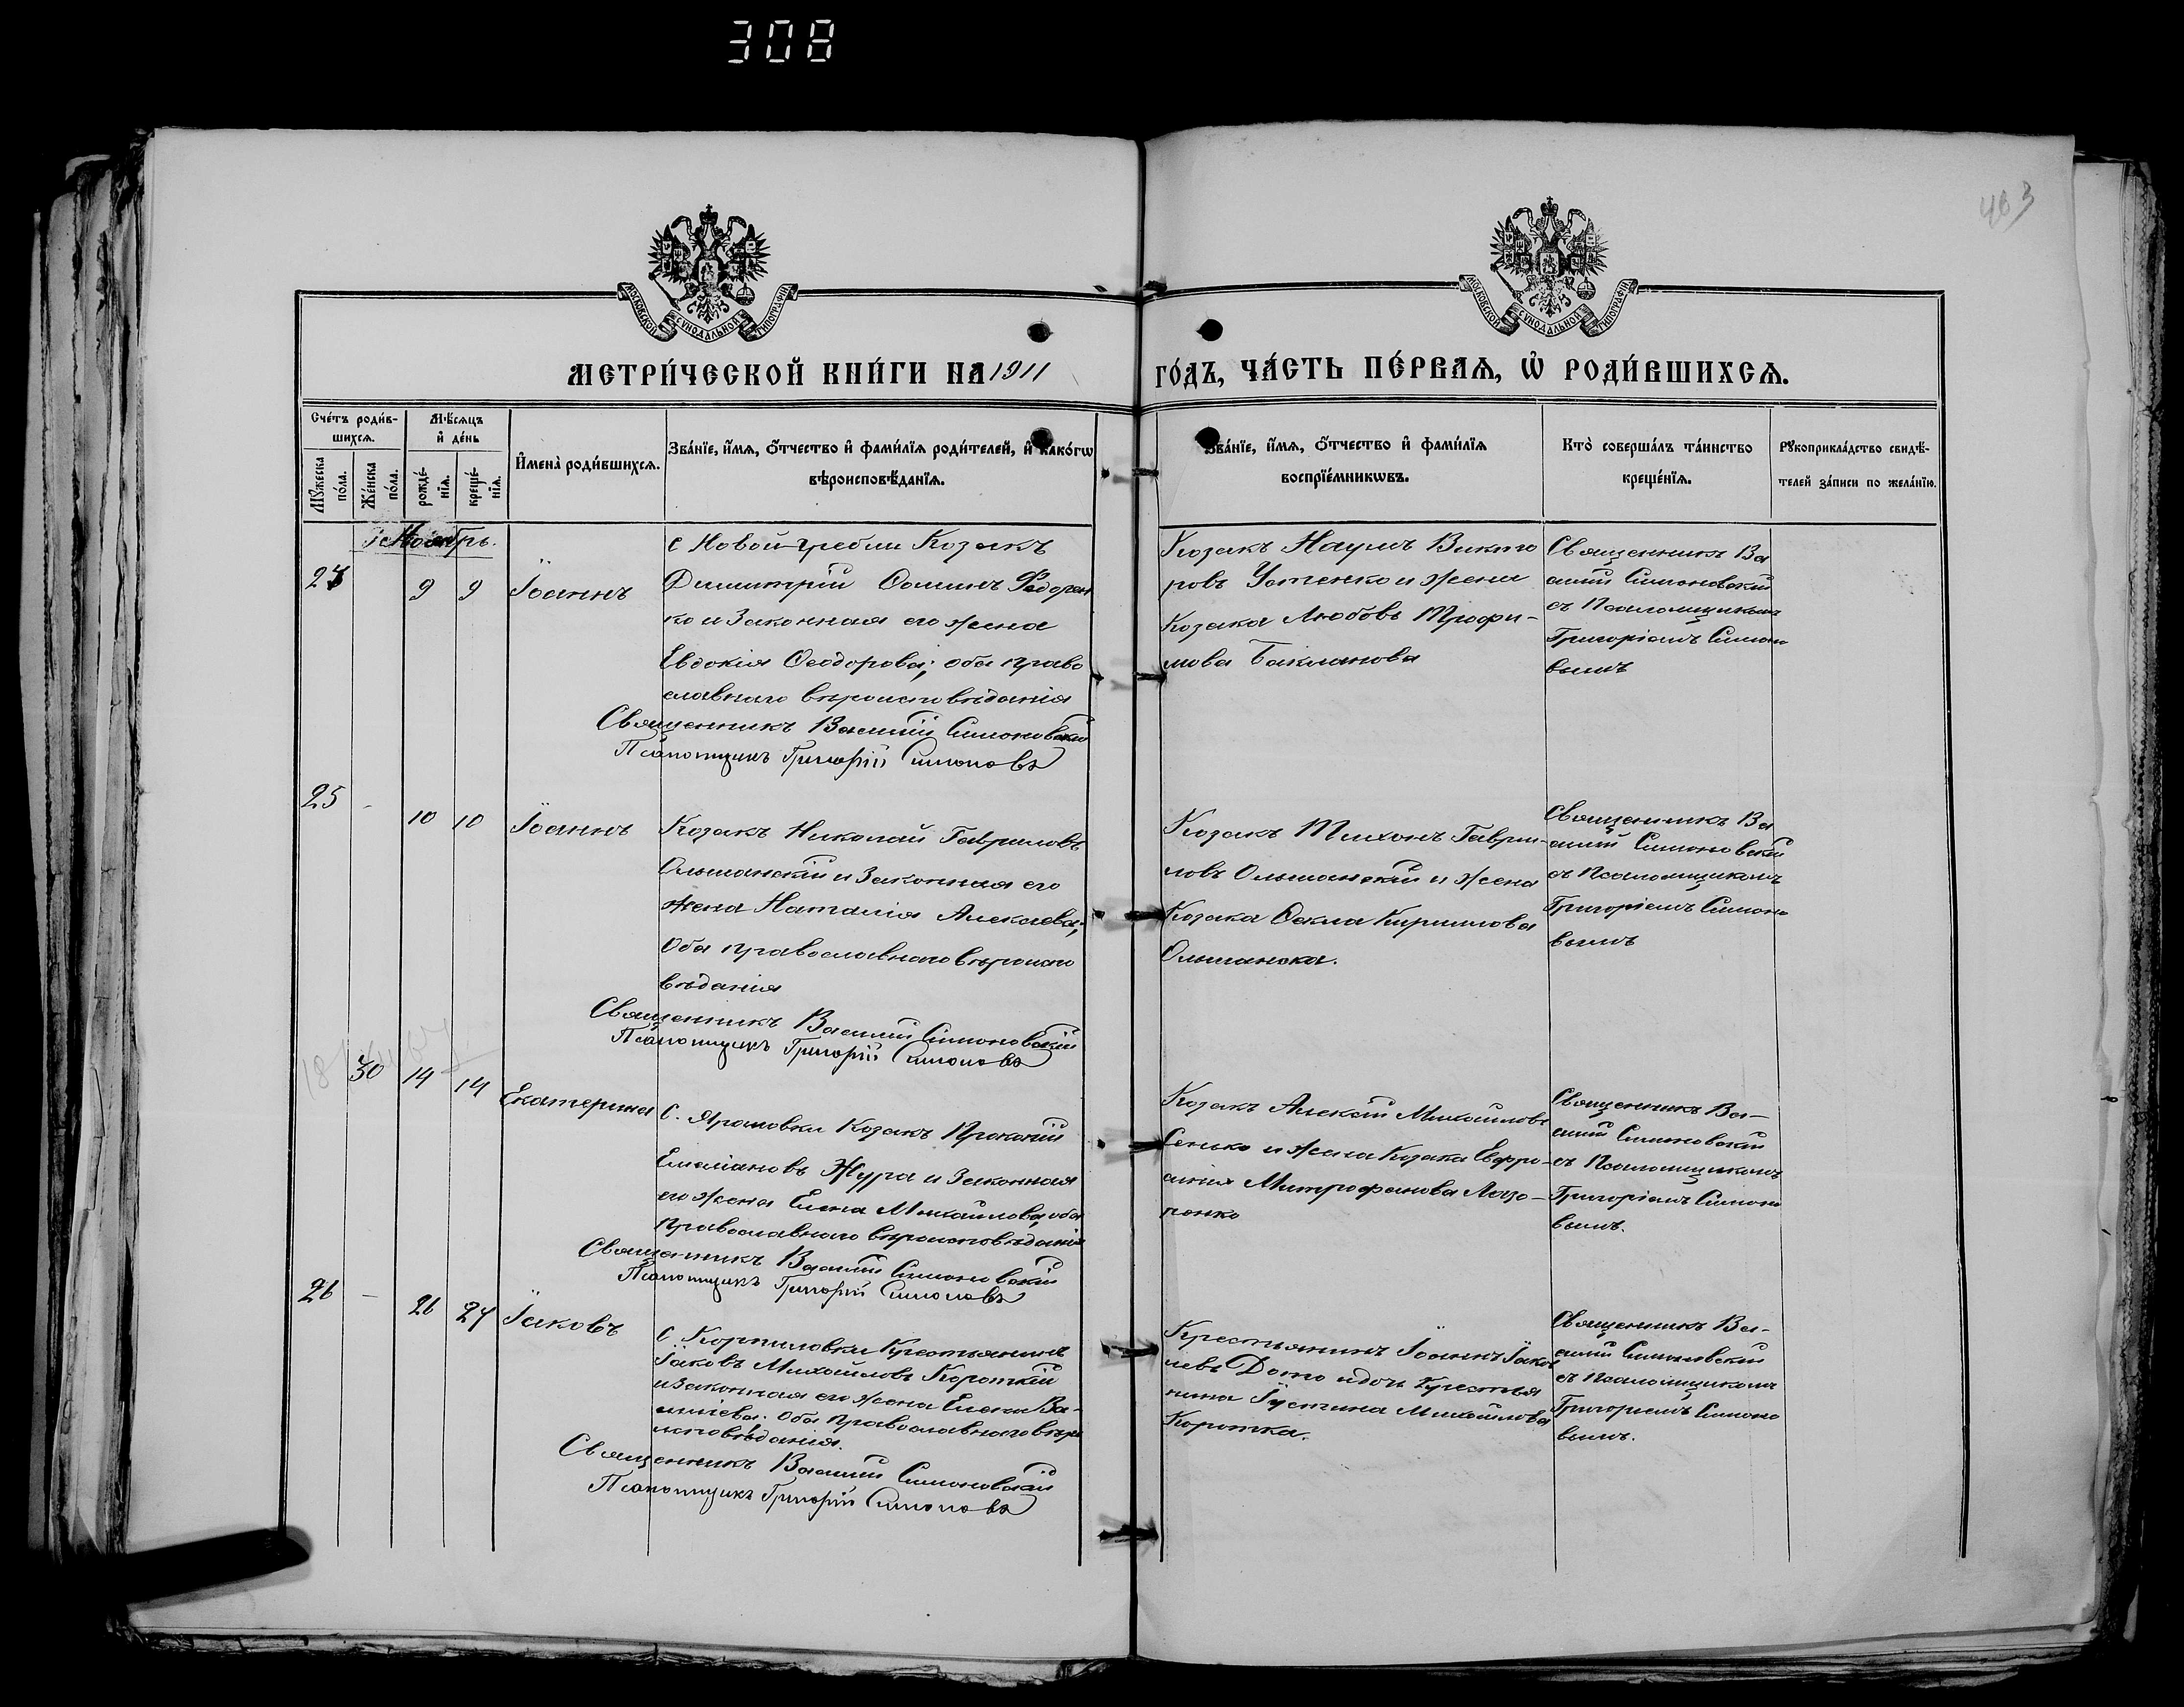 308
403
МОСКОВСКОЙ СѴНОДАЛЬНОЙ ТИПОГРАФІИ
МОСКОВСКОЙ СѴНОДАЛЬНОЙ ТИПОГРАФІИ
МЕТРИ́ЧЕСКОЙ КНИ́ГИ НА 1911
ГО́ДЪ, ЧА́СТЬ ПЕ́РВАѦ, Ѡ҆ РОДИ́ВШИХСѦ.
Сче́тъ роди́в-
шихсѧ.
Мꙋ́жеска
по́ла.
Же́нска
по́ла.
Мѣ́сѧцъ
и҆ де́нь
рожде́-
нїѧ.
креще́-
нїѧ.
И҆мена̀ роди́вшихсѧ.
Зва́нїе, и҆́мѧ, ѻ҆́тчество и҆ фами́лїѧ роди́телей, и҆ како́гѡ
вѣроисповѣ́данїѧ.
Зва́нїе, и҆́мѧ, ѻ҆́тчество и҆ фами́лїѧ
воспрїе́мникѡвъ.
Кто̀ соверша́лъ та́инство
креще́нїѧ.
Рꙋкоприкла́дство свидѣ́-
телей за́писи по жела́нїю.
Ноябрь.
24 9 9 Іоаннъ
с Новой-гребли Козакъ
Димитрій Ѳоминъ Федорен
ко и Законная его жена
Евдокія Ѳеодорова; оба право
славнаго вѣроисповѣданія
Священникъ Василій Симоновскій
Псаломщикъ Григорій Симоновъ
Козакъ Наумъ Викто
ровъ Устенко и жена
Козака Любовь Трофи-
мова Бакланова
Священникъ Ва
силій Симоновскій
съ Псаломщикомъ
Григоріемъ Симоно
вымъ
25 - 10 10 Іоаннъ
Козакъ Николай Гавриловъ
Ольшанскій и Законная его
жена Наталія Алексѣева;
Оба православнаго вѣроиспо
вѣданія
Священникъ Василій Симоновскій
Псаломщикъ Григорій Симоновъ
Козакъ Тихонъ Гаври-
ловъ Ольшанскій и жена
Козака Ѳекла Кириллова
Ольшанска.
Священникъ Ва
силій Симоновскій
съ Псаломщикомъ
Григоріемъ Симоно
вымъ
30 14 14 Екатерина
С. Ярошовки Козакъ Прокопій
Емеліановъ Жура и Законная
его жена Елена Михайлова, оба
Православнаго вѣроисповѣданія
Священникъ Василій Симоновскій
Псаломщикъ Григорій Симоновъ
Козакъ Алексій Михайловъ
Сенько и жена Козака Евфро-
синія Митрофанова Лазо-
ренко
Священникъ Ва-
силій Симоновскій
съ Псаломщикомъ
Григоріемъ Симоно
вымъ.
26 - 26 27 Іаковъ
С. Корниловки Крестьянинъ
Іаковъ Михайловъ Короткій
и Законная его жена Елена Ва-
силіева. Оба Православнаго вѣро
исповѣданія.
Священникъ Василій Симоновскій
Псаломщикъ Григорій Симоновъ
Крестьянинъ Іоаннъ Іаков
левъ и дочь Крестья
нина Іустина Михайлова
Коротка.
Священникъ Ва-
силій Симоновскій
съ Псаломщикомъ
Григоріемъ Симоно
вымъ.